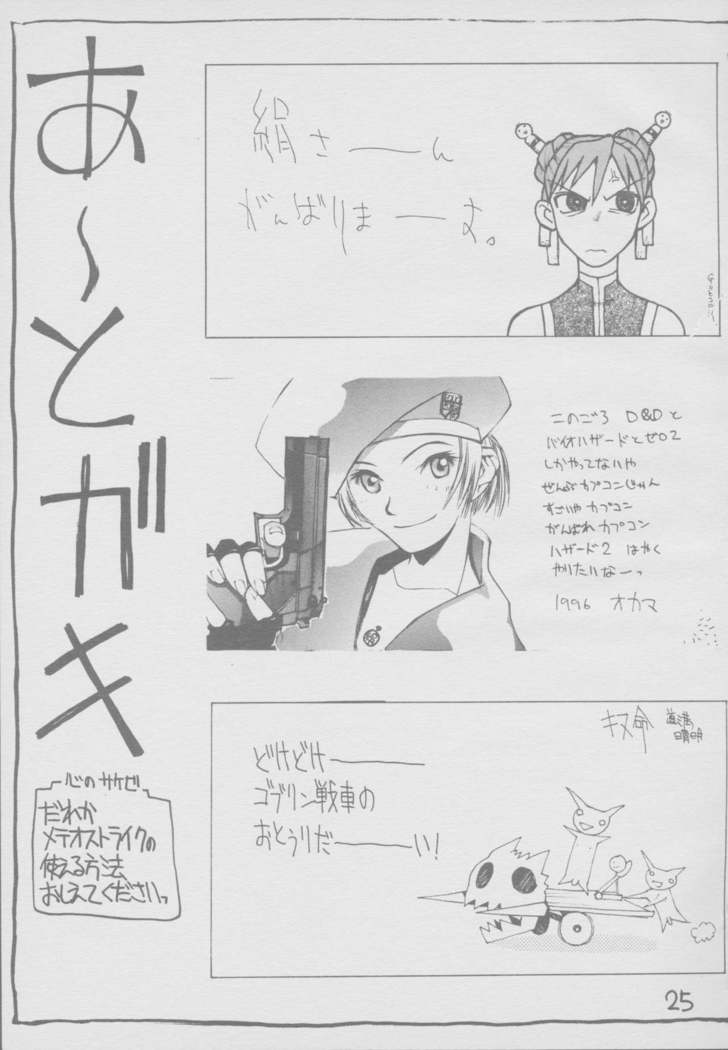 あ〜とがキ
絹さーーん
がんばりまーーす。
このごろ D&Dと
バイオハザードとゼロ2
しかやってないや
ぜんぶカプコンじゃん
すごいやカプコン
がんばれカプコン
ハザード2 はやく
やりたいなーっ
1996 オカマ
キヌ命
道満
晴明
どけどけーーー
ゴブリン戦車の
おとうりだーーーい!
心のサケビ
だれか
メテオストライクの
使える方法
おしえてくださいっ
25